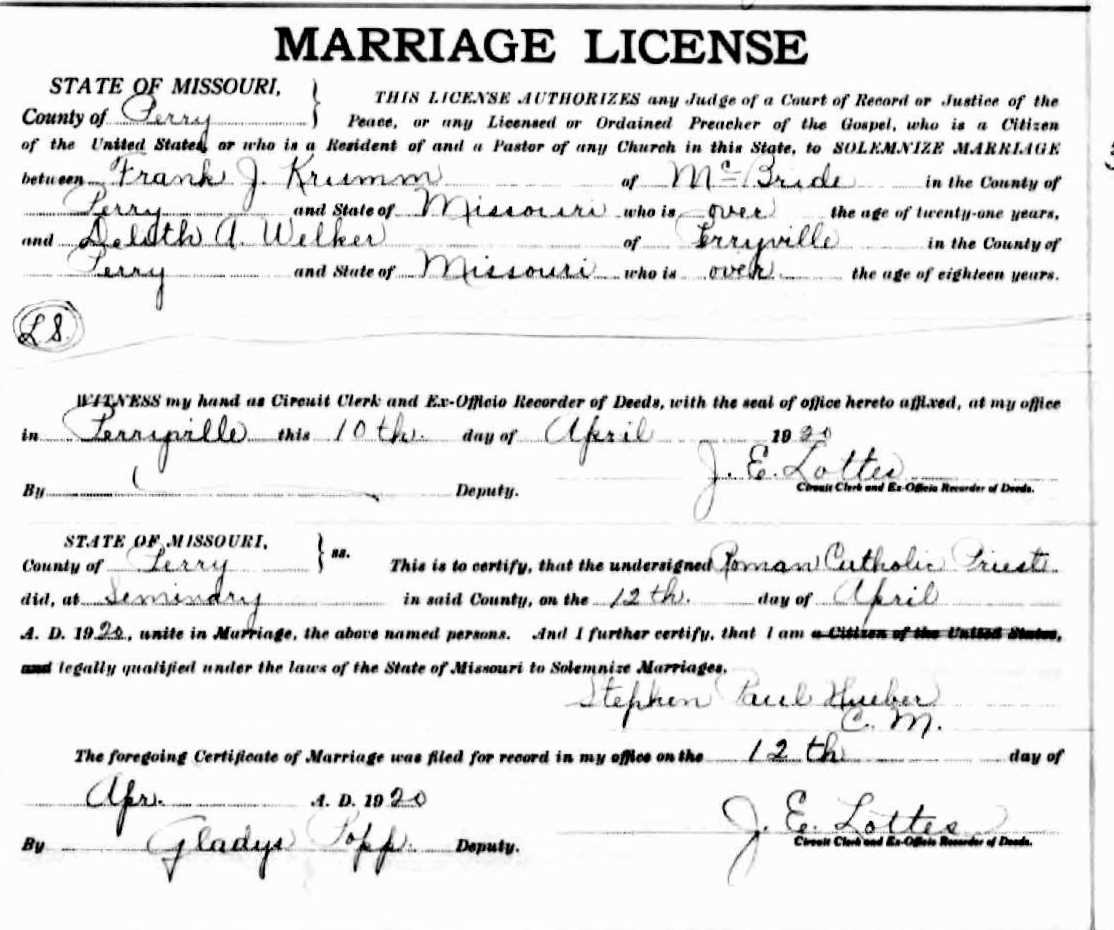 MARRIAGE LICENSE
STATE OF MISSOURI,
County of Perry
THIS LICENSE AUTHORIZES any Judge of a Court of Record or Justice of the
Peace, or any Licensed or Ordained Preacher of the Gospel, who is a Citizen
of the United States, or who is a Resident of and a Pastor of any Church in this State, to SOLEMNIZE MARRIAGE
between Frank J. Krumm of Mc Bride in the County of
Perry and State of Missouri who is over the age of twenty-one years,
and A. Welker of Perryville in the County of
Perry and State of Missouri who is over the age of eighteen years.
L S.
WITNESS my hand as Circuit Clerk and Ex-Officio Recorder of Deeds, with the seal of office hereto affixed, at my office
in Perryville this 10 th. day of April 1920
J. E. Lottes
By Deputy. Circuit Clerk and Ex-Officio Recorder of Deeds.
STATE OF MISSOURI,
County of Perry ss. This is to certify, that the undersigned Roman Catholic Priest
did, at Seminary in said County, on the 12 th. day of April
A. D. 1920, unite in Marriage, the above named persons. And I further certify, that I am a Citizen of the United States,
and legally qualified under the laws of the State of Missouri to Solemnize Marriages.
Stephen Paul Hueber
C. M.
The foregoing Certificate of Marriage was filed for record in my office on the 12 th day of
Apr. A. D. 1920
J. E. Lottes
By Gladys Popp. Deputy. Circuit Clerk and Ex-Officio Recorder of Deeds.